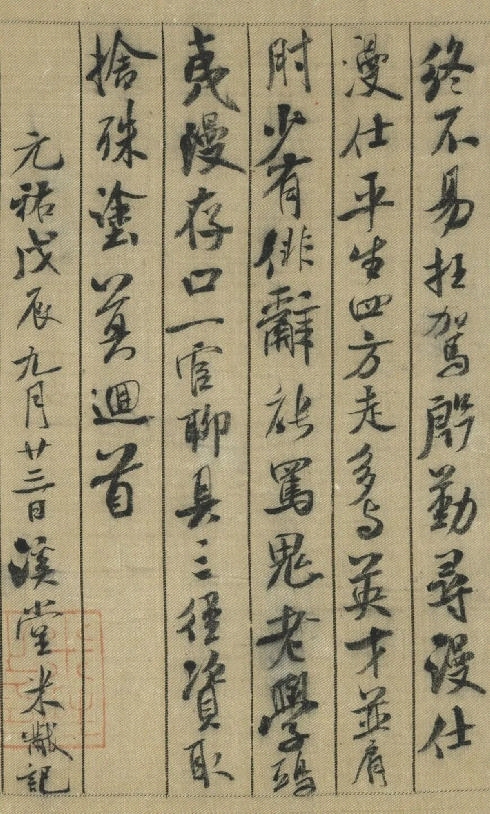 終不易枉駕殷勤尋漫仕
漫仕平生四方走多与英才並肩
肘少有俳辭能罵鬼老學鴟
夷漫存口一官聊具三徑資取
捨殊塗莫迴首
元祐戊辰九月廿三日溪堂米黻記